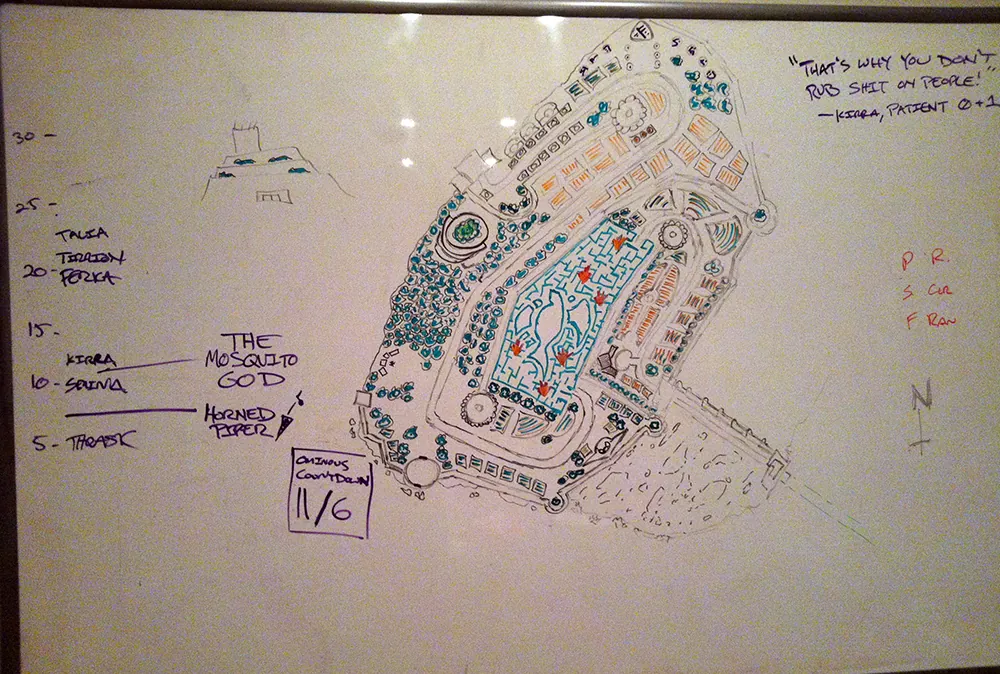 "THAT'S WHY YOU DON'T
RUB SHIT ON PEOPLE!"
—KIRRA, PATIENT 0+1
30 -
25 -
TALIA
TIRRION
20 - PERKA
15 -
KIRRA
10 - SELIMA
5 - THRASK
THE
MOSQUITO
GOD
HORNED
PIPER
OMINOUS
COUNTDOWN
11/6
P R.
S CUR
F RAN
N